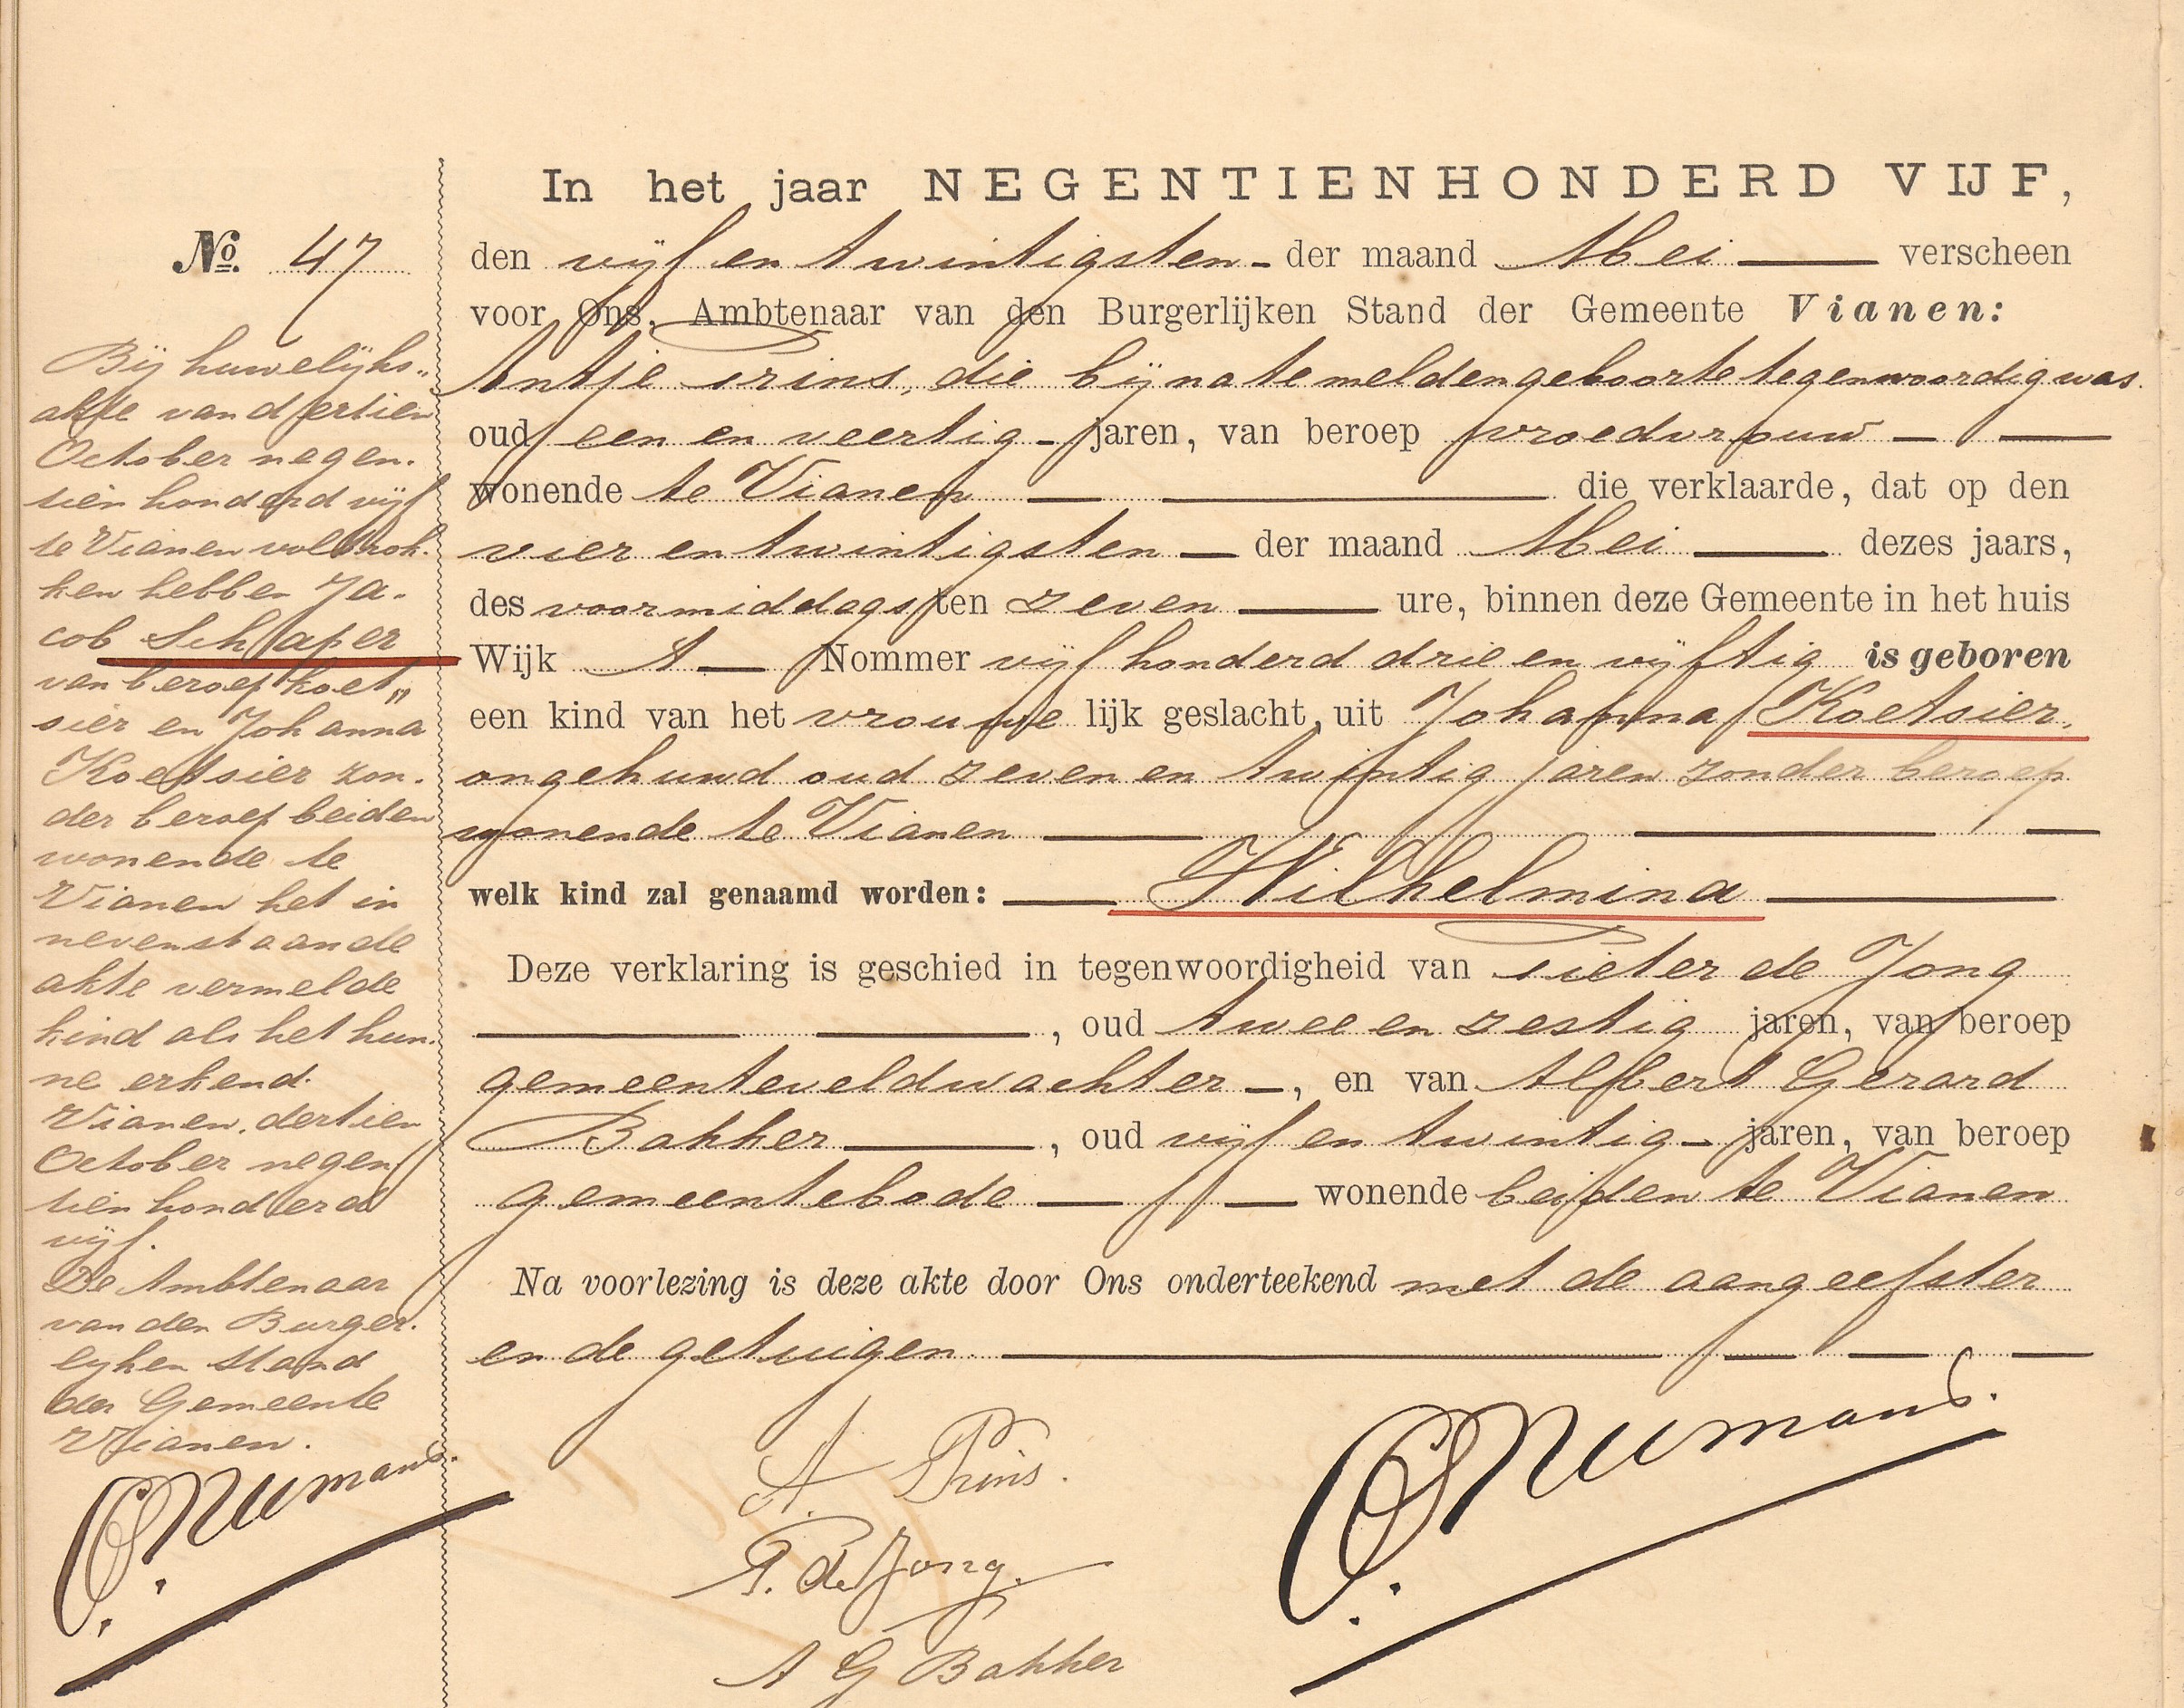 No. 47
Bij huwelijks„
akte van dertien
October negen-
tien honderd vijf
te Vianen voltrok-
ken hebben Ja-
cob Schaper
van beroep koet„
sier en Johanna
Koetsier zon-
der beroep beiden
wonende te
Vianen het in
nevenstaande
akte vermelde
kind als het hun-
ne erkend.
Vianen, dertien
October negen
tien honderd
vijf.
De Ambtenaar
van den Burger-
lijken Stand
der Gemeente
Vianen.
Numans.
In het jaar NEGENTIENHONDERD VIJF,
den vijf en twintigsten - der maand Mei — verscheen
voor Ons, Ambtenaar van den Burgerlijken Stand der Gemeente Vianen:
Antje Prins, die bij na te melden geboorte tegenwoordig was
oud een en veertig - jaren, van beroep vroedvrouw — —
wonende te Vianen — — die verklaarde, dat op den
vier en twintigsten — der maand Mei — dezes jaars,
des voormiddags ten zeven — ure, binnen deze Gemeente in het huis
Wijk A — Nommer vijf honderd drie en vijftig is geboren
een kind van het vrouwe lijk geslacht, uit Johanna Koetsier,
ongehuwd oud zeven en twintig jaren zonder beroep
wonende te Vianen — — —
welk kind zal genaamd worden: — Wilhelmina —
Deze verklaring is geschied in tegenwoordigheid van Pieter de Jong
— — , oud twee en zestig jaren, van beroep
gemeenteveldwachter —, en van Albert Gerard
Bakker — , oud vijf en twintig - jaren, van beroep
gemeentebode — — wonende beiden te Vianen
Na voorlezing is deze akte door Ons onderteekend met de aangeefster
en de getuigen. — — — —
A. Prins.
P. de Jong.
A G Bakker
Numans.